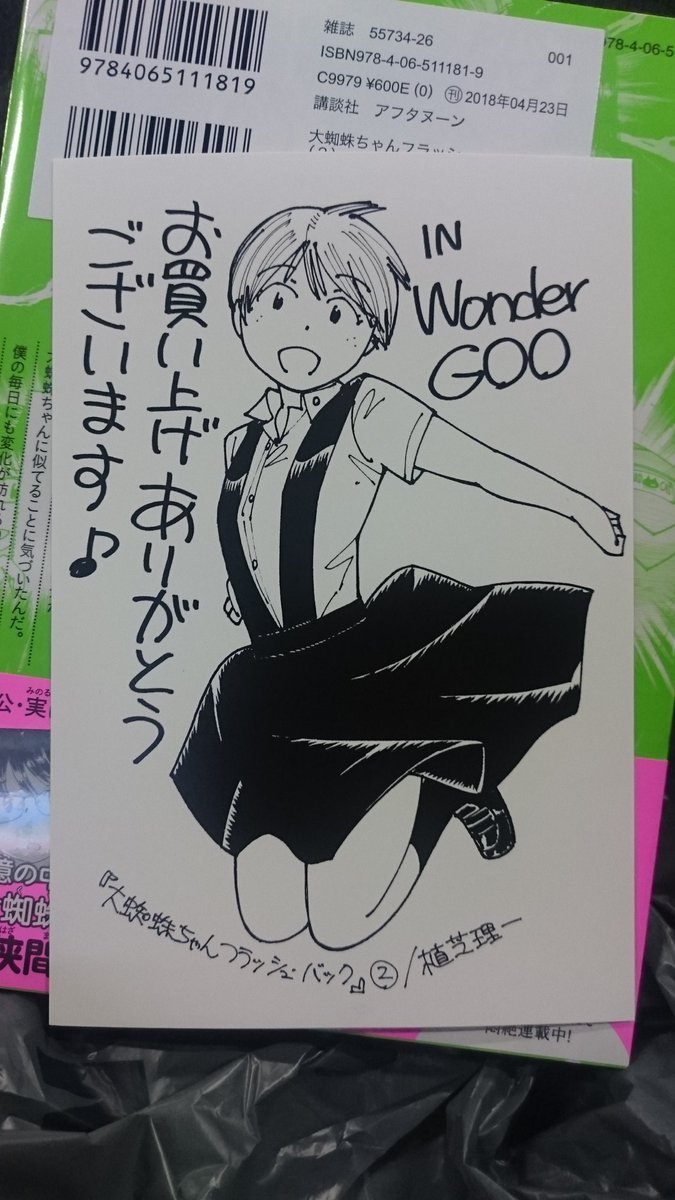 雑誌 55734-26
ISBN978-4-06-511181-9
001
9784065111819
C9979 ¥600E (0) ㊑ 2018年04月23日
講談社 アフタヌーン
大蜘蛛ちゃんフラッシ
978-4-06-5
IN
Wonder
GOO
お買い上げありがとう
ございます♪
『大蜘蛛ちゃんフラッシュ・バック』②/植芝理一
大蜘蛛ちゃんに似てることに気づいたんだ。
僕の毎日にも変化が訪れ
公・実
みのる
憶の中
蜘蛛
狭間
はざま
悶絶連載中!